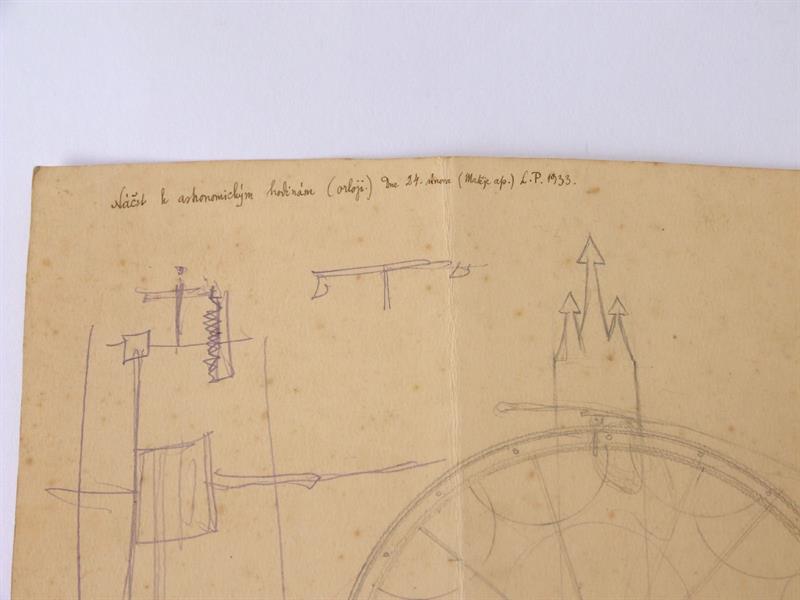 Náčrt k astronomickým hodinám (orloji.) Dne 24. února (Matěje ap.) L.P. 1933.